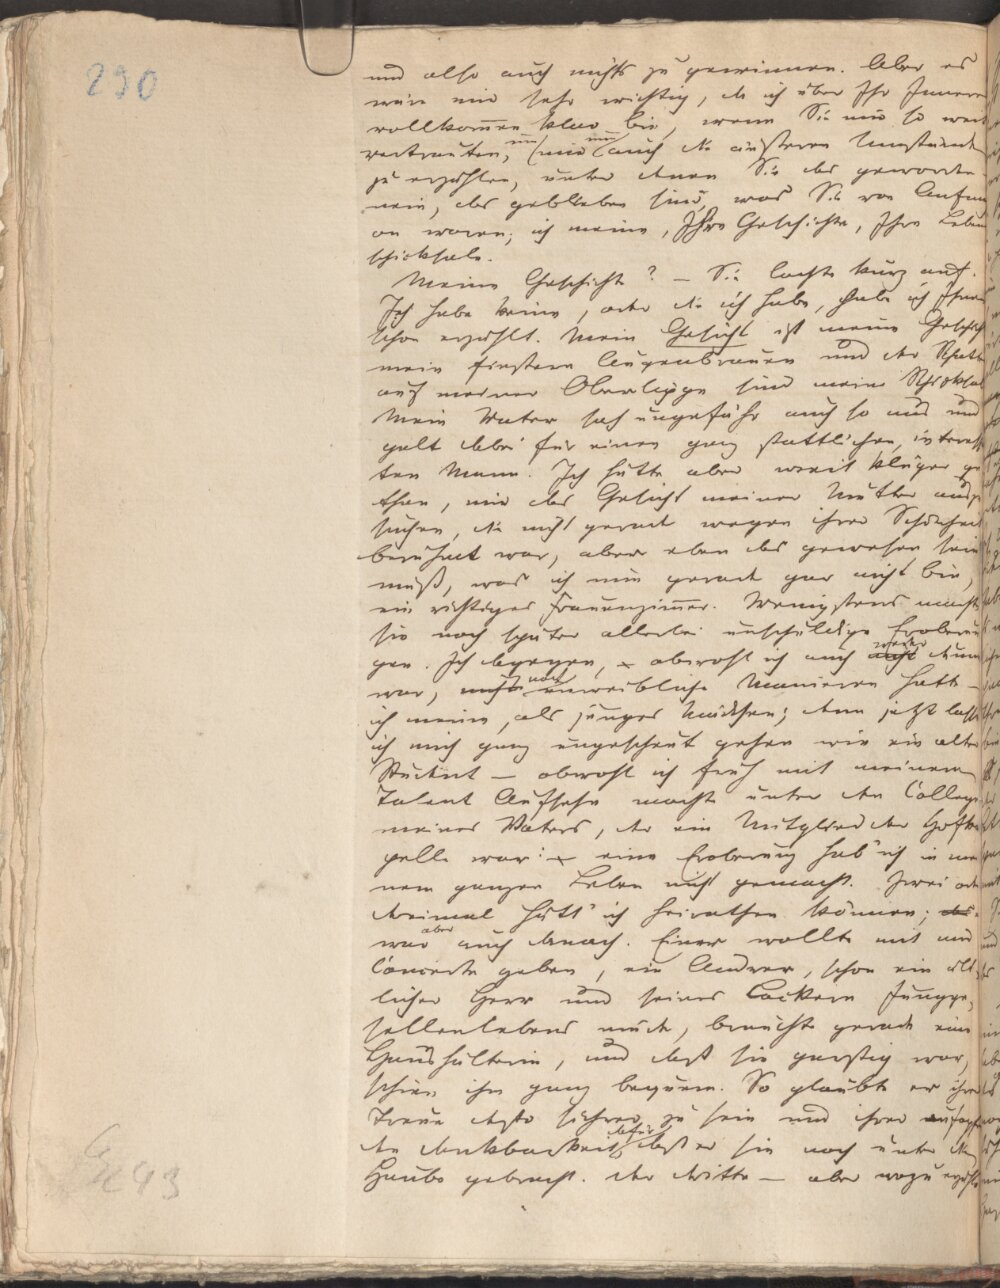 290
und also auch nichts zu gewinnen. Aber es
wäre mir sehr wichtig, da ich über Ihr Inneres
vollkom̄en klar bin, wenn Sie mir so weit
vertrauten, um mir nun auch die äußeren Umstände
zu erzählen, unter denen Sie das geworden –
nein, das geblieben sind, was Sie von Anfang
an waren; ich meine, Ihre Geschichte, Ihre Lebens
schicksale.
Meine Geschichte? – Sie lachte kurz auf.
Ich habe keine, oder die ich habe, hab' ich Ihnen
schon erzählt. Mein Gesicht ist meine Geschichte
mein finstern Augenbrauen und der Schatten
auf meiner Oberlippe sind meine Schicksale
Mein Vater sah ungefähr auch so aus und
galt dabei für einen ganz stattlichen, interessan
ten Mann. Ich hätte aber weit klüger ge
than, mir das Gesicht meiner Mutter auszu
suchen, die nicht gerade wegen ihrer Schönheit
berühmt war, aber eben das gewesen sein
muß, was ich nun gerade gar nicht bin,
ein richtiges Frauenzim̄er. Wenigstens machte
sie noch später allerlei unschuldige Eroberun
gen. Ich dagegen, obwohl ich auch nicht weder dumm
war, noch unweibliche Manieren hatte –
ich meine, als junges Mädchen; denn jetzt lass'
ich mich ganz ungescheut gehen wie ein alter
Student – obwohl ich früh mit meinem
Talent Aufsehn machte unter den Collegen
meines Vaters, der ein Mitglied der Hofka
pelle war: eine Eroberung hab' ich in mei
nem ganzen Leben nicht gemacht. Zwei oder
dreimal hätt' ich heirathen können;
war aber auch danach. Einer wollte mit mir
Concerte geben, ein Andrer, schon ein ält
licher Herr und seines lockern Jungge-
sellenlebens müde, brauchte gerade eine
Haushälterin, und daß sie garstig war,
schien ihm ganz bequem. So glaubte er ihrer
Treue desto sichrer zu sein und ihrer aufopfern
den Dankbarkeit dafür, daß er sie noch unter die
Haube gebracht. Der dritte – aber wozu erzähle
43